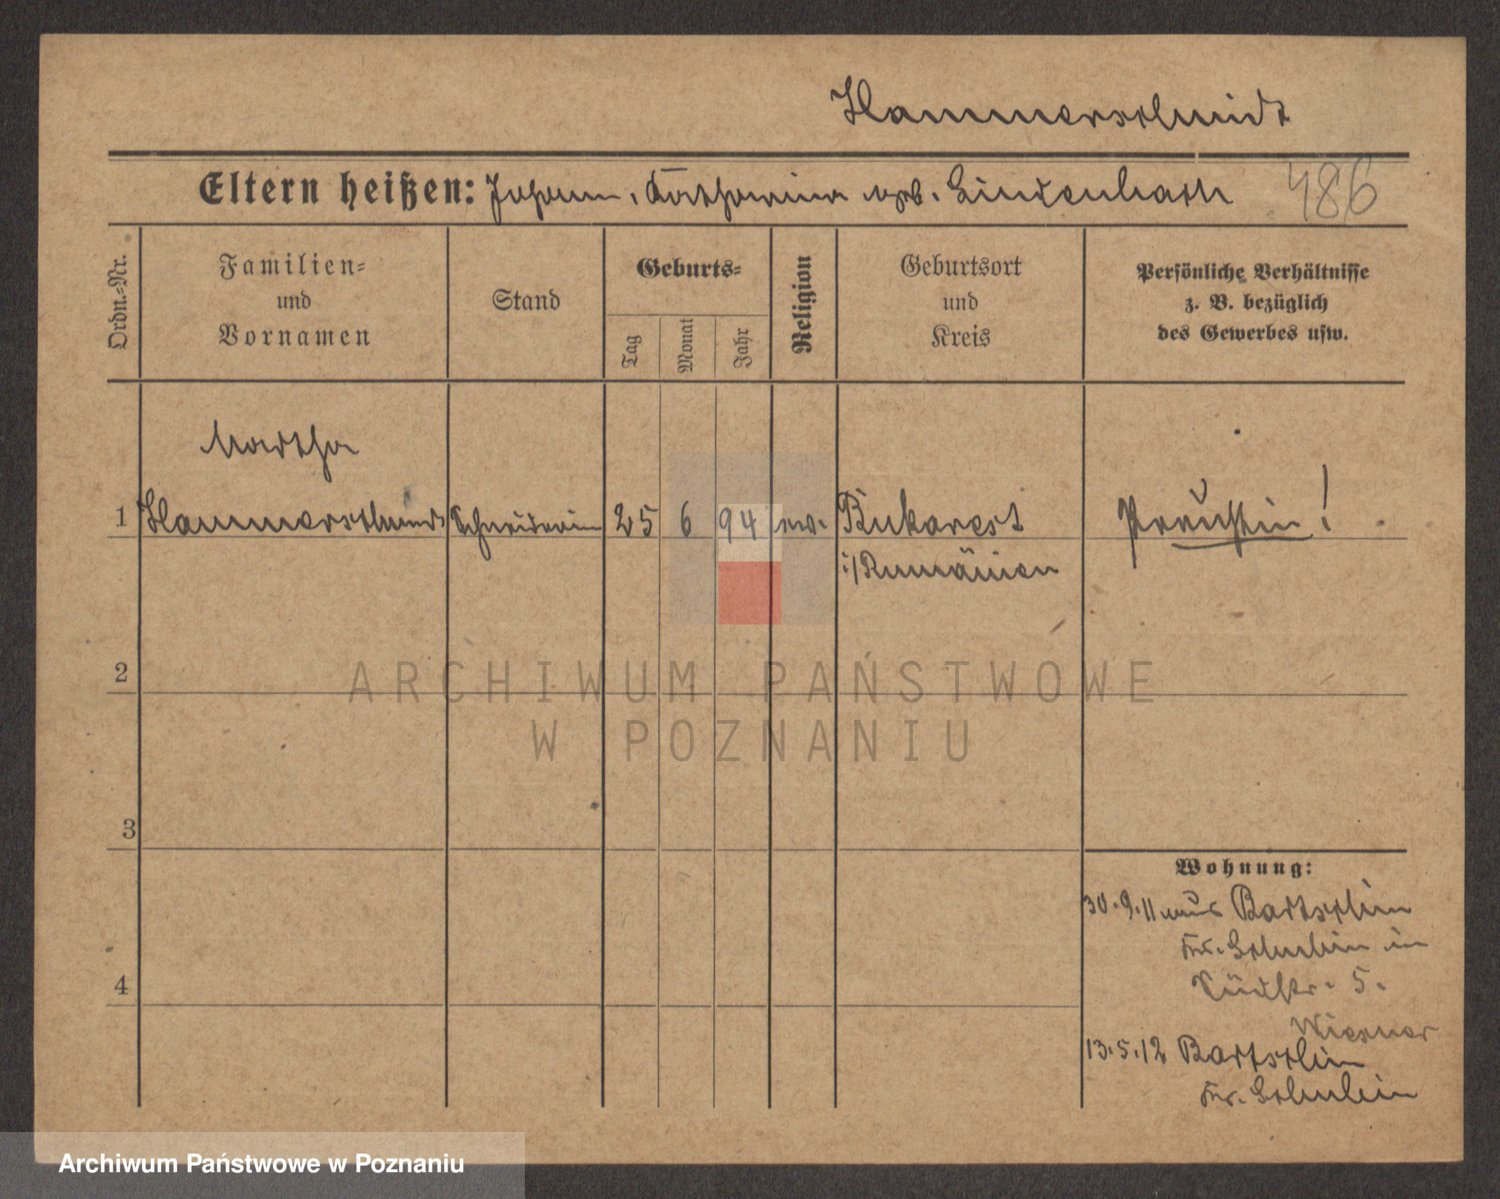 Hammerschmidt
Eltern heißen: Johann, Katharina geb. Lindenbach 486
Ordn.-Nr.
Familien-
und
Vornamen
Stand
Geburts-
Tag
Monat
Jahr
Religion
Geburtsort
und
Kreis
Persönliche Verhältnisse
z. B. bezüglich
des Gewerbes usw.
Martha
1 Hammerschmidt Schneiderin 25 6 94 ev. Bukarest Preußin!
i/Rumänien
2
ARCHIWUM PAŃSTWOWE
W POZNANIU
3
Wohnung:
30.9.11 aus Bartschin
Kr. Schubin in
Südstr. 5.
4
Wiesner
13.5.12 Bartschin
Kr. Schubin
Archiwum Państwowe w Poznaniu